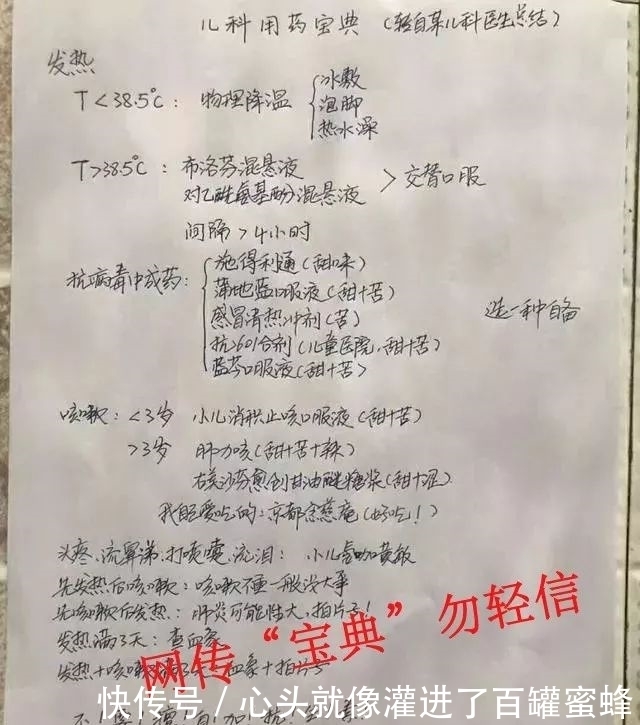 儿科用药宝典 (轻自某儿科医生总结)
发热
T<38.5℃: 物理降温 冰敷
泡脚
热水澡
T>38.5℃: 布洛芬混悬液
对乙酰氨基酚混悬液 > 交替口服
间隔>4小时
抗病毒中成药: 施得利通(甜味)
蒲地蓝口服液(甜+苦)
感冒清热冲剂(苦) 选一种自备
抗601合剂(儿童医院,甜+苦)
蓝芩口服液(甜+苦>
咳嗽: <3岁 小儿消积止咳口服液(甜+苦)
>3岁 肺力咳(甜+苦+辣)
右美沙芬愈创甘油醚糖浆(甜+涩)
我自己爱吃的:京都念慈庵(好吃!)
头疼、流鼻涕、打喷嚏、流泪: 小儿氨咖黄敏
先发热后咳嗽: 咳嗽不重一般没大事
先咳嗽后发热: 肺炎可能性大,拍片子!
发热满3天: 查血象
发热+咳嗽 血象+拍片子
网传“宝典”勿轻信
快传号/心头就像灌进了百罐蜜蜂